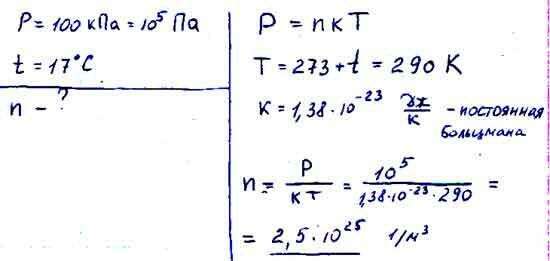 P = 100 кПа = 10⁵ Па
t = 17°C
n - ?
P = nкT
T = 273 + t = 290 K
к = 1,38 · 10⁻²³ Дж/К - постоянная
Больцмана
n = P/кT = 10⁵/1,38·10⁻²³·290 =
= 2,5 · 10²⁵ 1/м³